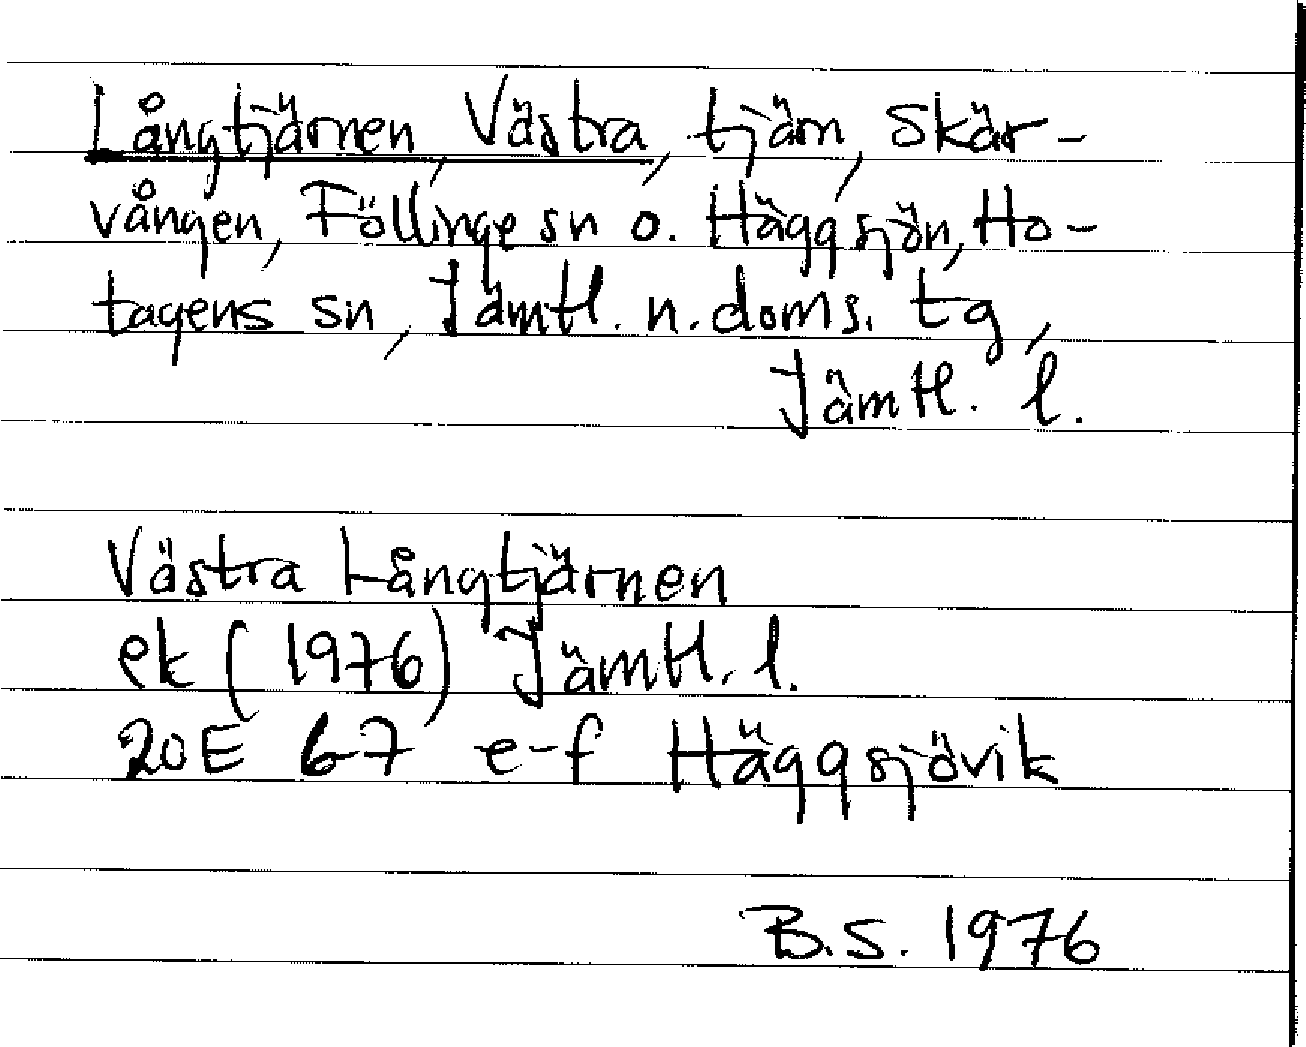 Långtjärnen, Västra, tjärn, Skär-
vången, Föllinge sn o. Häggsjön, Ho-
tagens sn, Jämtl. n. doms. tg,
Jämtl. l.
Västra Långtjärnen
ek (1976) Jämtl. l.
20E 67 e-f Häggsjövik
B.S. 1976